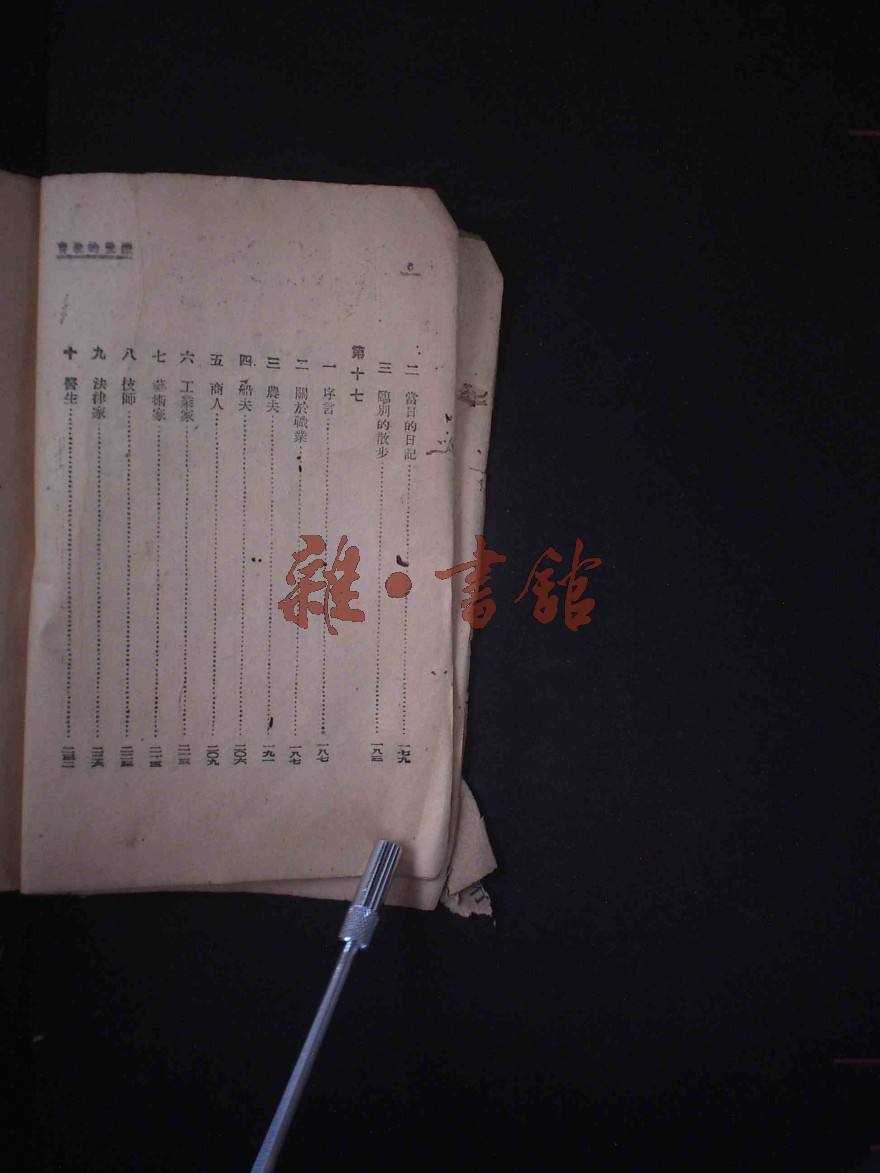 續愛的教育
6
二 當日的日記 一七九
三 臨別的散步 一八三
第十七
一 序言 一八七
二 關於職業 一八七
三 農夫 一九一
四 船夫 二〇六
五 商人 二〇九
六 工業家
七 藝術家
八 技師
九 法律家
十 醫生 二四二
雜·書館